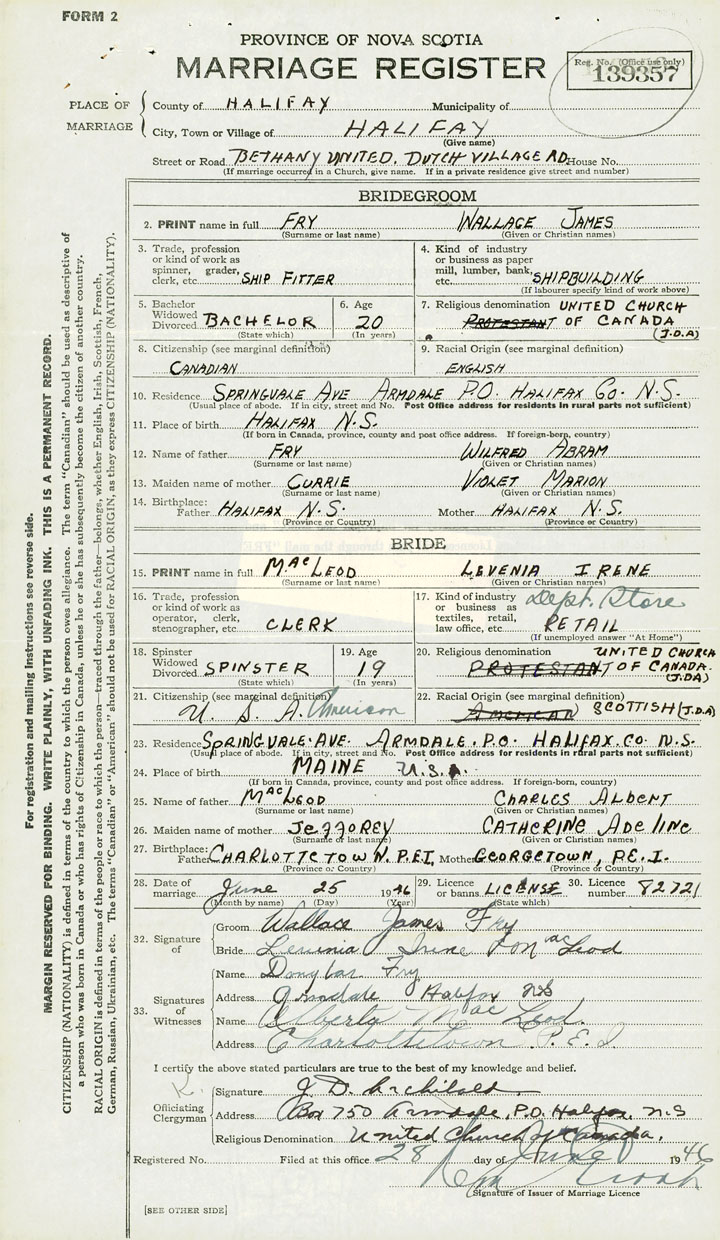 FORM 2
PROVINCE OF NOVA SCOTIA
MARRIAGE REGISTER
Reg. No. (Office use only)
139357
PLACE OF MARRIAGE
County of HALIFAY Municipality of
City, Town or Village of HALIFAY
(Give name)
Street or Road BETHANY UNITED, DUTCH VILLAGE RD, House No.
(If marriage occurred in a Church, give name. If in a private residence give street and number)
BRIDEGROOM
2. PRINT name in full FRY WALLAGE JAMES
(Surname or last name) (Given or Christian names)
3. Trade, profession or kind of work as spinner, grader, clerk, etc. SHIP FITTER
4. Kind of industry or business as paper mill, lumber, bank, etc. SHIPBUILDING
(If labourer specify kind of work above)
5. Bachelor Widowed Divorced BACHELOR
(State which)
6. Age 20
(In years)
7. Religious denomination UNITED CHURCH
PROTESTANT OF CANADA
(J.D.A)
8. Citizenship (see marginal definition) CANADIAN
9. Racial Origin (see marginal definition) ENGLISH
10. Residence SPRINGVALE AVE ARMDALE P.O. HALIFAX CO. N.S.
(Usual place of abode. If in city, street and No. Post Office address for residents in rural parts not sufficient)
11. Place of birth HALIFAX N.S.
(If born in Canada, province, county and post office address. If foreign-born, country)
12. Name of father FRY WILFRED ABRAM
(Surname or last name) (Given or Christian names)
13. Maiden name of mother CURRIE VIOLET MARION
(Surname or last name) (Given or Christian names)
14. Birthplace: Father HALIFAX N.S. Mother HALIFAX N.S.
(Province or Country) (Province or Country)
BRIDE
15. PRINT name in full MacLEOD LEVENIA IRENE
(Surname or last name) (Given or Christian names)
16. Trade, profession or kind of work as operator, clerk, stenographer, etc. CLERK
17. Kind of industry or business as textiles, retail, law office, etc. Dept. Store RETAIL
(If unemployed answer "At Home")
18. Spinster Widowed Divorced SPINSTER
(State which)
19. Age 19
(In years)
20. Religious denomination UNITED CHURCH
PROTESTANT OF CANADA.
(J.DA)
21. Citizenship (see marginal definition) U. S. A. American
22. Racial Origin (see marginal definition)
AMERICAN SCOTTISH (J.D.A)
23. Residence SPRINGVALE AVE. ARMDALE. P.O. HALIFAX. CO. N.S.
(Usual place of abode. If in city, street and No. Post Office address for residents in rural parts not sufficient)
24. Place of birth MAINE U.S.A.
(If born in Canada, province, county and post office address. If foreign-born, country)
25. Name of father MacLEOD CHARLES ALBERT
(Surname or last name) (Given or Christian names)
26. Maiden name of mother JEFFOREY CATHERINE ADELINE
(Surname or last name) (Given or Christian names)
27. Birthplace: Father CHARLOTTETOWN. P.E.I. Mother GEORGETOWN, P.E.I.
(Province or Country) (Province or Country)
28. Date of marriage June 25 1946
(Month by name) (Day) (Year)
29. Licence or banns LICENSE
(State which)
30. Licence number 82721
32. Signature of
Groom Wallace James Fry
Bride Levinia Irene MacLeod
33. Signatures of Witnesses
Name Douglas Fry
Address Armdale Halifax NS
Name Alberta Mac Leod.
Address Charlottetown P.E.I
I certify the above stated particulars are true to the best of my knowledge and belief.
Officiating Clergyman
Signature J. D. Archibald
Address Box 750 Armdale, P.O. Halifax, N.S
Religious Denomination United Church of Canada.
Registered No. Filed at this office 28 day of June 1946
Signature of Issuer of Marriage Licence
[SEE OTHER SIDE]
For registration and mailing instructions see reverse side.
MARGIN RESERVED FOR BINDING. WRITE PLAINLY, WITH UNFADING INK. THIS IS A PERMANENT RECORD.
CITIZENSHIP (NATIONALITY) is defined in terms of the country to which the person owes allegiance. The term "Canadian" should be used as descriptive of
a person who was born in Canada or who has rights of Citizenship in Canada, unless he or she has subsequently become the citizen of another country.
RACIAL ORIGIN is defined in terms of the people or race to which the person—traced through the father—belongs, whether English, Irish, Scottish, French,
German, Russian, Ukrainian, etc. The terms "Canadian" or "American" should not be used for RACIAL ORIGIN, as they express CITIZENSHIP (NATIONALITY).